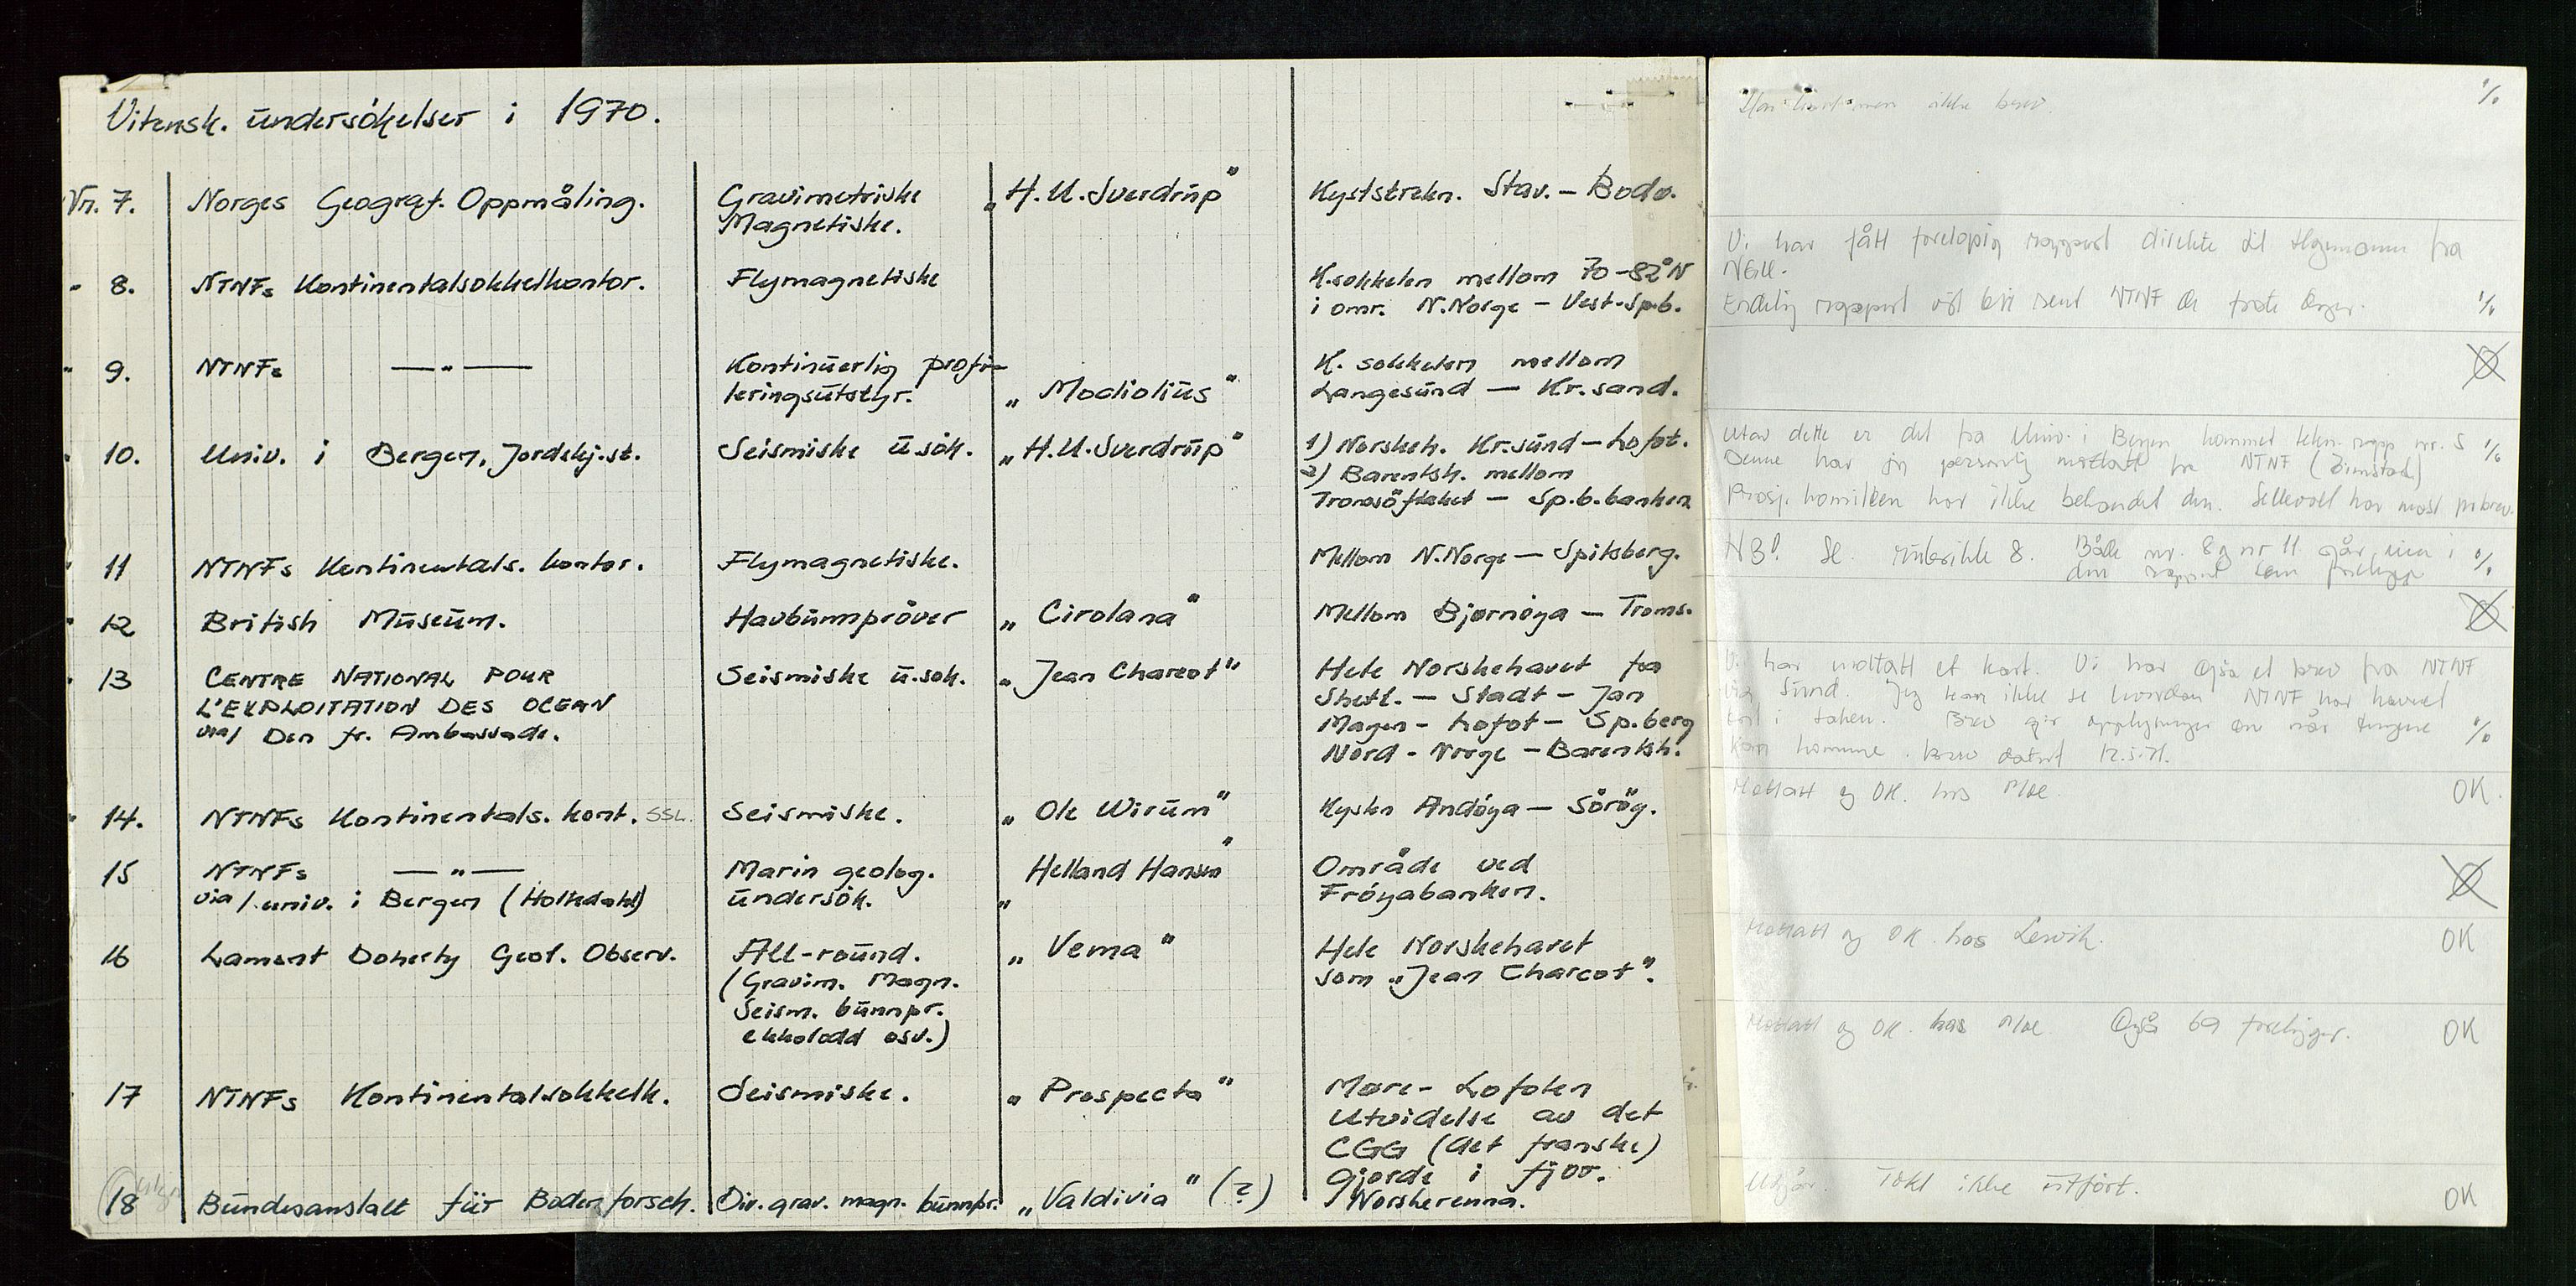 Vitensk. undersökelser i 1970.
Nr. 7. Norges Geograf. Oppmåling. Gravimetriske „H.U.Sverdrup" Kyststrekn. Stav. — Bodø.
Magnetiske.
" 8. NTNFs Kontinentalsokkelkontor. Flymagnetiske K.sokkelen mellom 70-82°N
i omr. N.Norge — Vest-Sp.b.
" 9. NTNFs —"— Kontinuerlig profi- „Modiolius" K. sokkelen mellom
leringsutstyr. Langesund — Kr.sand.
" 10. Univ. i Bergen, Jordskj.st. Seismiske u.sök. „H.U.Sverdrup" 1) Norskeh. Kr.sund — Lofot.
2) Barentsh. mellom
Tromsöflaket — Sp.b.banken
" 11 NTNFs Kontinentals. kontor. Flymagnetiske. Mellom N.Norge — Spitsberg.
" 12 British Museum. Havbunnpröver „Cirolana" Mellom Bjørnöya — Troms.
" 13 CENTRE NATIONAL POUR Seismiske u.sök. „Jean Charcot" Hele Norskehavet fra
L'EXPLOITATION DES OCEAN Shetl. — Stadt — Jan
via/ Den fr. Ambassade. Mayen - Lofot — Sp.berg
Nord - Norge — Barentsh.
" 14. NTNFs Kontinentals. kont. SSL. Seismiske. „Ole Wirum" Kysten Andøya — Söröy.
15 NTNFs —"— Marin geolog. „Helland Hansen" Område ved
via/ univ. i Bergen (Holtedahl) undersök. Fröyabanken.
16 Lamont Doherty Geol. Observ. All-round. „Vema" Hele Norskehavet
(Gravim. Magn. som „Jean Charcot".
Seism. bunnpr.
ekkolodd osv.)
17 NTNFs Kontinentalsokkelk. Seismiske. „Prospecta" Møre - Lofoten
Utvidelse av det
CGG (det franske)
gjorde i fjor.
18 Bundesanstalt für Bodenforsch. Div. grav. magn. bunnpr. „Valdivia" (?) Norskerenna.
ikke brev. %
Vi har fått foreløpig rapport direkte til fra
NGU.
Endelig rapport vil bli sendt NTNF %
Utav dette er det fra Univ. i Bergen kommet tekn. rapp nr. 5 %
Denne har jeg personlig mottatt fra NTNF
Prosj. komiteen har ikke behandlet den. Sellevoll har
NB! Se rubrikk 8. Både nr. 8 og nr 11 går inn i %
den rapport som foreligger
Vi har mottatt et kart. Vi har også et brev fra NTNF
Sund. Jeg kan ikke se hvordan NTNF har
i saken. Brev gir opplysninger om når tingene %
kan komme. Brev datert 12.5.71.
Mottatt og OK. hos OK.
Mottatt og OK. hos Lervik. OK
Mottatt og OK. hos Også 69 foreligger. OK
Utgår. Tokt ikke utført. OK